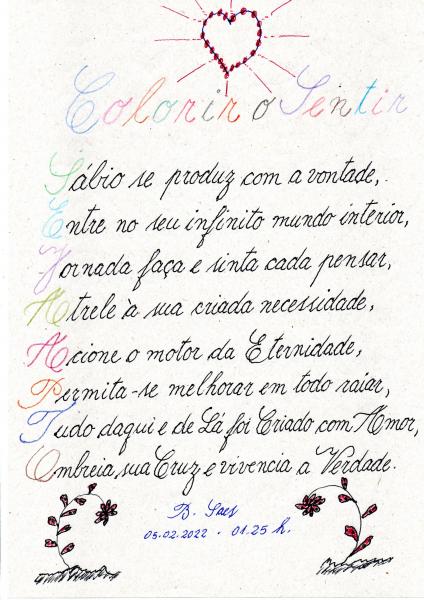 Colorir o Sentir
Sábio se produz com a vontade,
Entre no seu infinito mundo interior,
Jornada faça e sinta cada pensar,
Atrele à sua criada necessidade,
Acione o motor da Eternidade,
Permita-se melhorar em todo raiar,
Tudo daqui e de Lá foi Criado com Amor,
Ombreia sua Cruz e vivencia a Verdade.
B. Saes
05.02.2022 - 01.25 h.